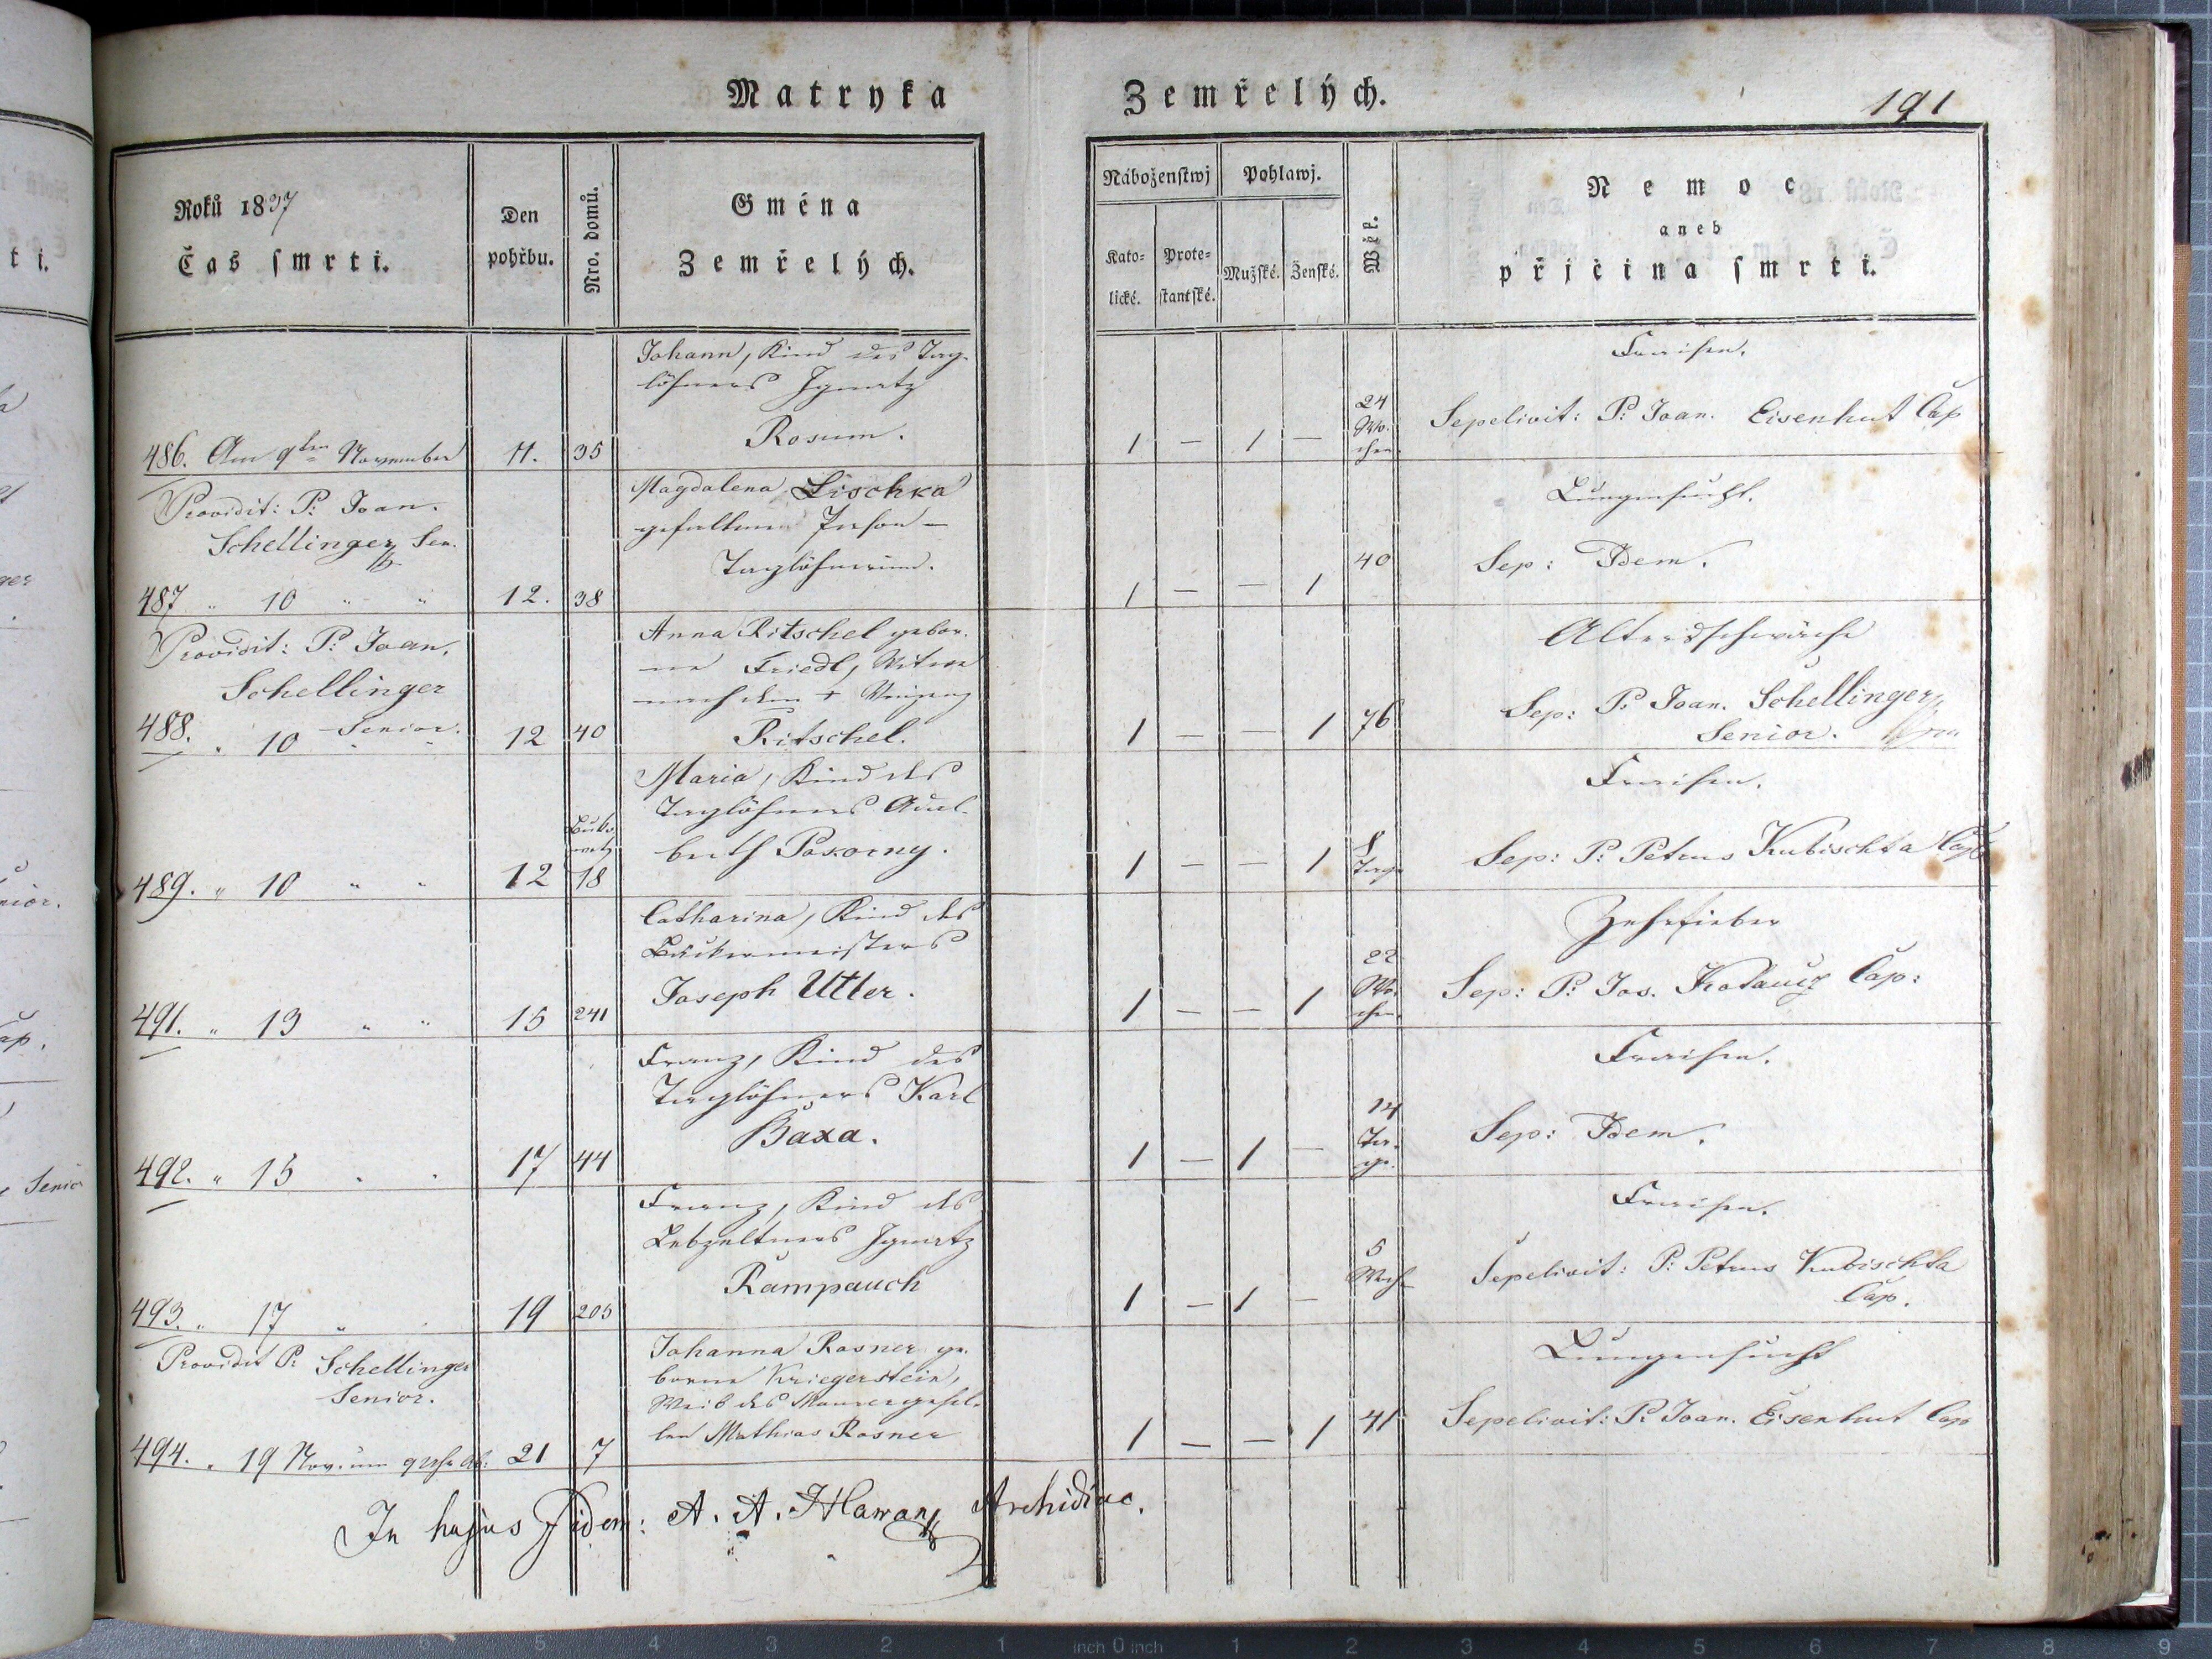 Matryka Zemřelých.
191
Roků 1837
Čas smrti.
Den
pohřbu.
Nro. domů.
Gména
Zemřelých.
Náboženstwj
Kato-
lické.
Prote-
stantské.
Pohlawj.
Mužské.
Ženské.
Wěk.
Nemoc
aneb
přjčina smrti.
Johann, Kind des Tag-
löhners Ignatz
Rosum.
486. Am 9ten November
11.
35
1 — 1 —
24
Wo-
chen
Fraisen.
Sepelivit: P. Joan. Eisenhut Cap
Providit: P. Joan.
Schellinger Sen.
487 " 10 " "
12.
38
Magdalena Lischka
gefallene Person —
Taglöhnerinn.
1 — — 1
40
Lungensucht.
Sep: Idem.
Providit: P. Joan.
Schellinger
Senior.
488. " 10 " "
12
40
Anna Ritschel gebor-
ne Friedl, Witwe
nach dem +
Ritschel.
1 — — 1
76
Altersschwäche
Sep: P. Joan. Schellinger
Senior.
489. " 10 " "
12
18
Maria, Kind des
Taglöhners Adal-
berth Pokorny.
1 — — 1
8
Tage
Fraisen.
Sep: P. Petrus Kubischta Cap
491. " 13 " "
15
241
Catharina, Kind des
Bäckermeisters
Joseph Utler.
1 — — 1
22
Wo-
chen
Zehrfieber
Sep: P. Jos. Cap:
492. " 15 " "
17
44
Franz, Kind des
Taglöhners Karl
Baxa.
1 — 1 —
14
Ta-
ge
Fraisen.
Sep: Idem.
493. " 17 "
19
205
Franz, Kind des
Lebzeltners Ignatz
Rampauch
1 — 1 —
5
Woch
Fraisen.
Sepelivit: P. Petrus Kubischta
Cap.
Providit P. Schellinger
Senior.
494. " 19 Nov. um
21
7
Johanna Rosner ge-
borne Kriegerstein,
Weib des Maurergesel-
len Mathias Rosner
1 — — 1
41
Lungensucht
Sepelivit: P. Joan. Eisenhut Cap
In hujus fidem: A. A. Archidiac.